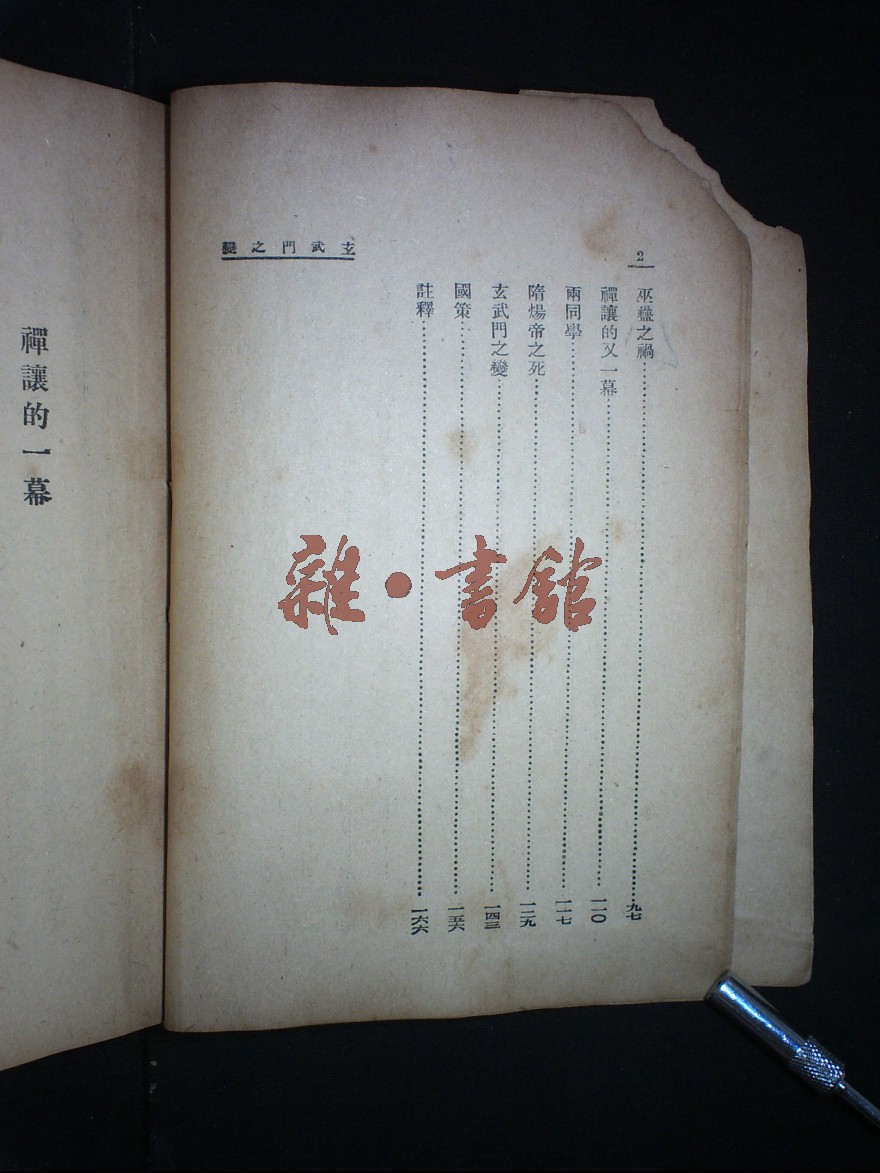 2
巫蠱之禍……九七
禪讓的又一幕……一一〇
兩同學……一一七
隋煬帝之死……一二九
玄武門之變……一四三
國策……一五六
註釋……一六六
玄武門之變
禪讓的一幕
雜·書館